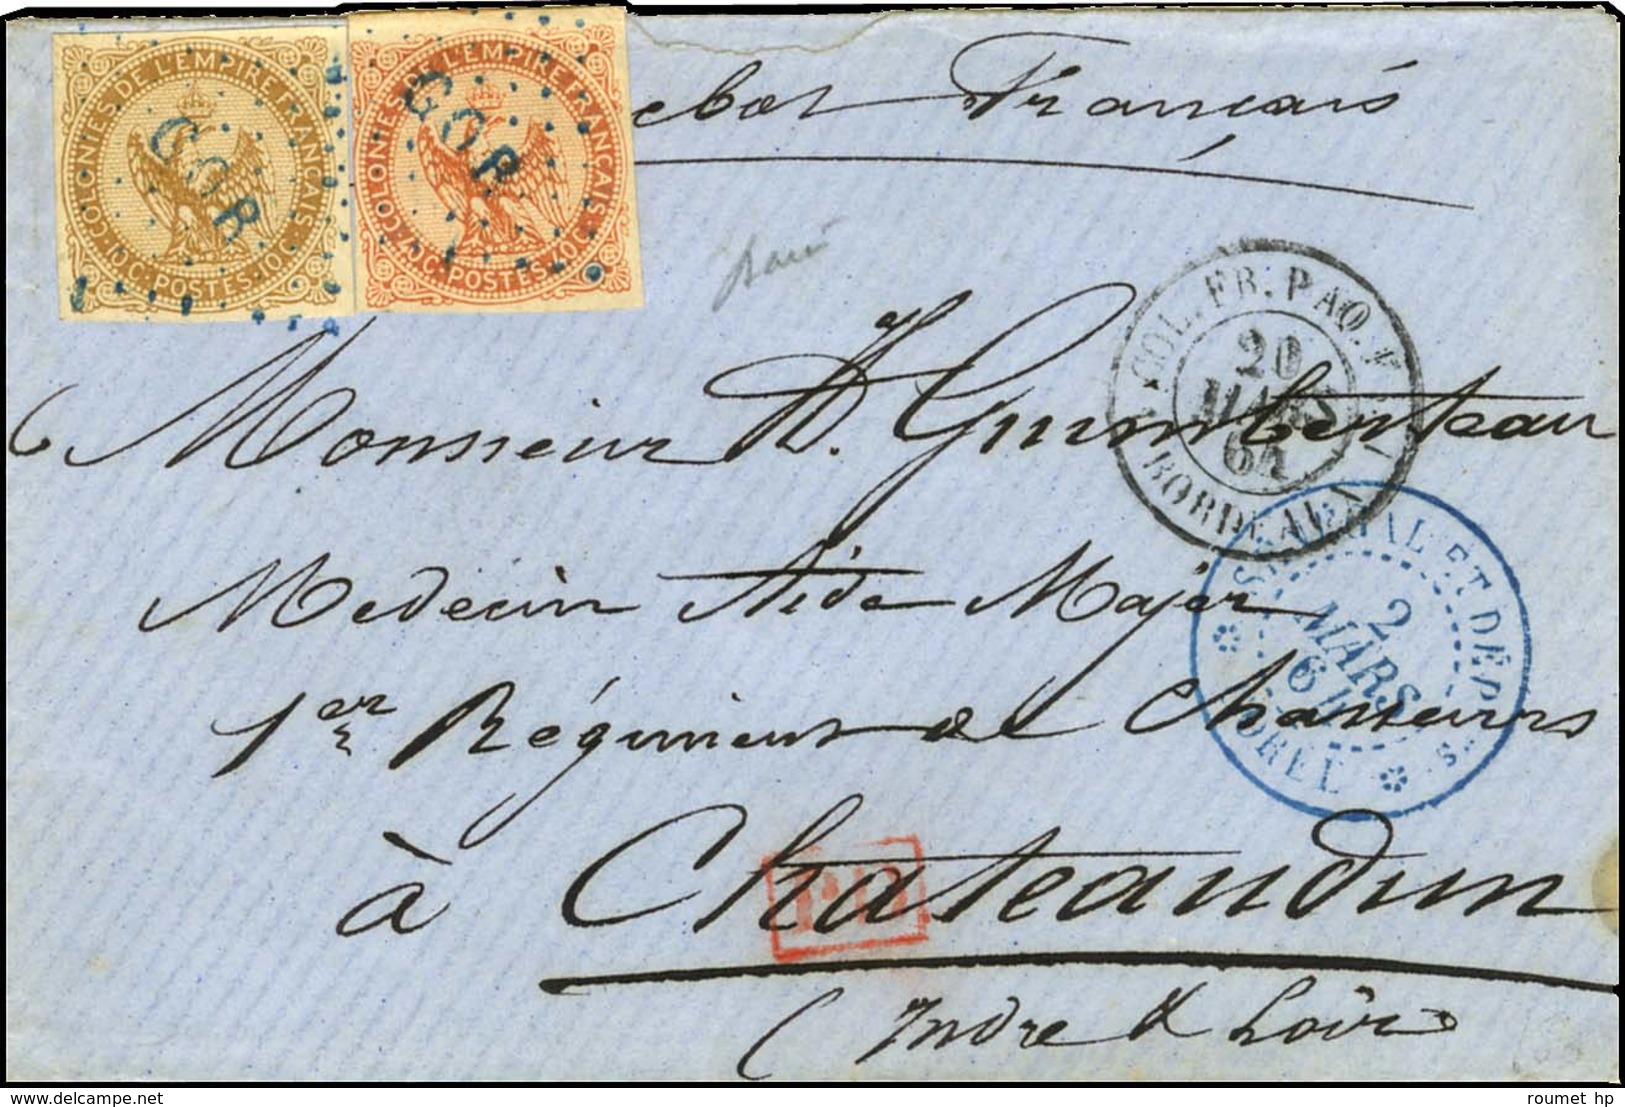 COLONIES DE L'EMPIRE FRANÇAIS
10 C. POSTES 10 C.
GOR
COLONIES DE L'EMPIRE FRANÇAIS
40 C. POSTES 40 C.
GOR
Français
COL. FR. PAQ. F
20
MARS
64
BORDEAUX
Monsieur H. Guimberteau
SÉNÉGAL ET DÉP.
2
MARS
64
GORÉE
Medecin Aide Major
1er Régiment de Chasseurs
à Chateaudun
PD
(Indre & Loir
roumet hp